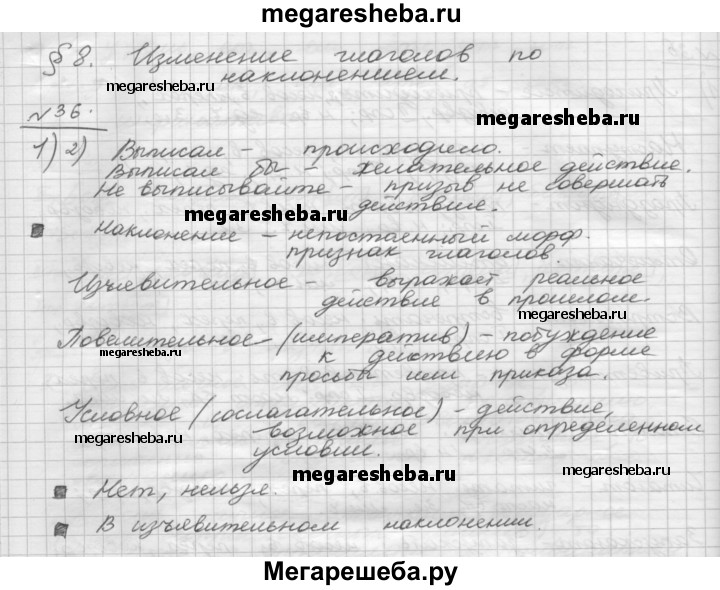 megaresheba.ru
§ 8. Изменение глаголов по
наклонением.
megaresheba.ru
megaresheba.ru
№36.
1) 2) Выписал - происходило.
Выписал бы - желательное действие.
Не выписывайте - призыв не совершать
действие.
megaresheba.ru
Наклонение - непостоянный морф.
признак глаголов.
Изъявительное - выражает реальное
действие в прошлом.
megaresheba.ru
Повелительное (императив) - побуждение
к действию в форме
просьбы или приказа.
megaresheba.ru
megaresheba.ru
Условное (сослагательное) - действие,
возможное при определенном
условии.
megaresheba.ru
megaresheba.ru
megaresheba.ru
Нет, нельзя.
В изъявительном наклонении.
Мегарешеба.ру